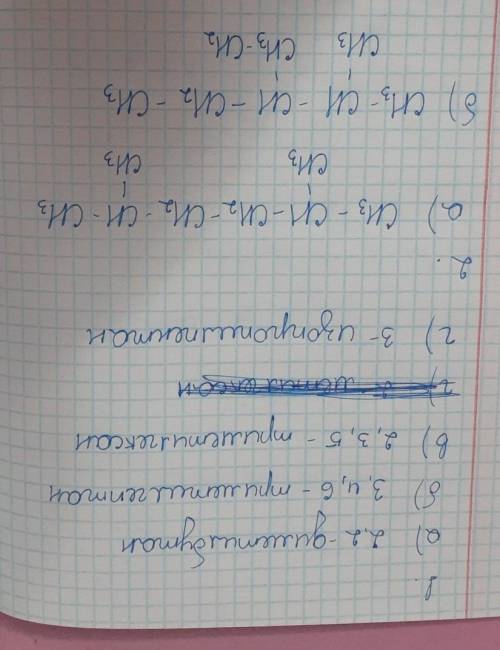 1.
а) 2,2-диметилбутан
б) 3,4,6 - триметилгептан
в) 2,3,5 - триметилгексан
г) 3-изопропилпентан
2.
а) CH3 - CH - CH2 - CH2 - CH - CH3
CH3 CH3
б) CH3 - CH - CH - CH2 - CH3
CH3 CH3-CH2